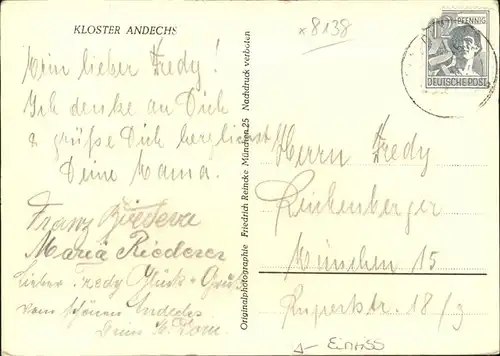 KLOSTER ANDECHS
x 8138
Mein lieber Fredy!
Ich denke an Dich
& grüße Dich herzlichst
Deine Mama.
Franz
Maria Riederer
Lieber Fredy Glück + Gruß
vom schönen Andechs
Dein
Originalphotographie Friedrich Reincke München 25 Nachdruck verboten
12 PFENNIG
DEUTSCHE POST
Herrn Fredy
München 15
Ruppertstr. 18/3
Einriss